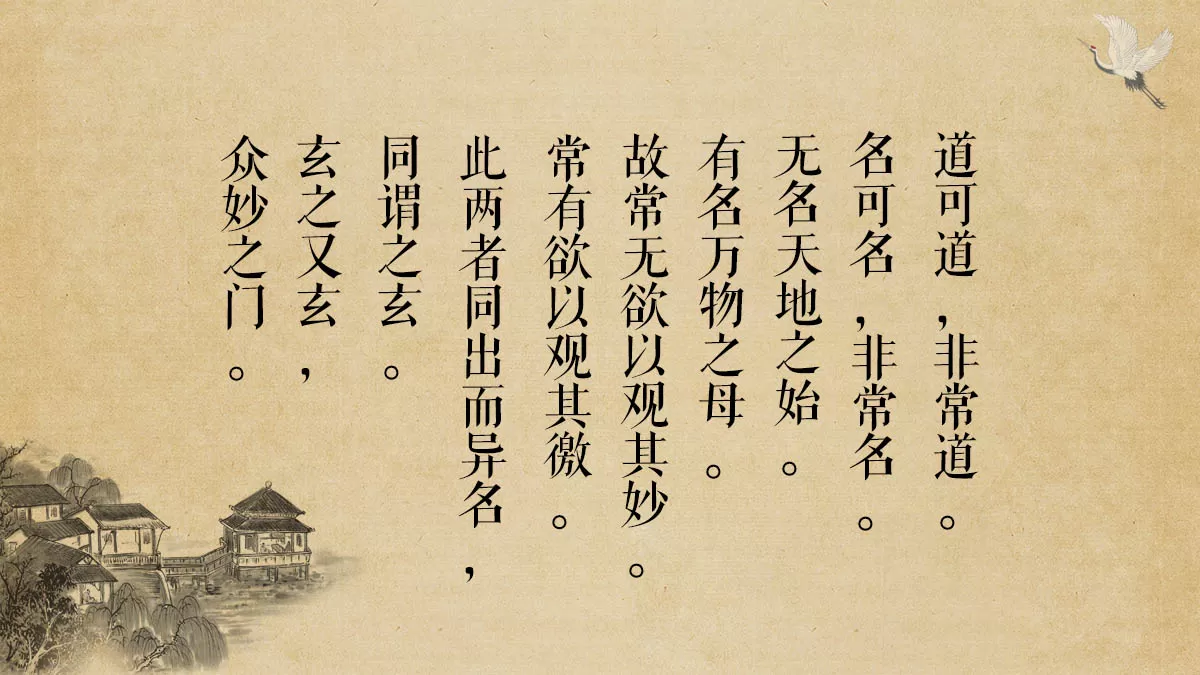 道可道，非常道。
名可名，非常名。
无名天地之始。
有名万物之母。
故常无欲以观其妙。
常有欲以观其徼。
此两者同出而异名，
同谓之玄。
玄之又玄，
众妙之门。